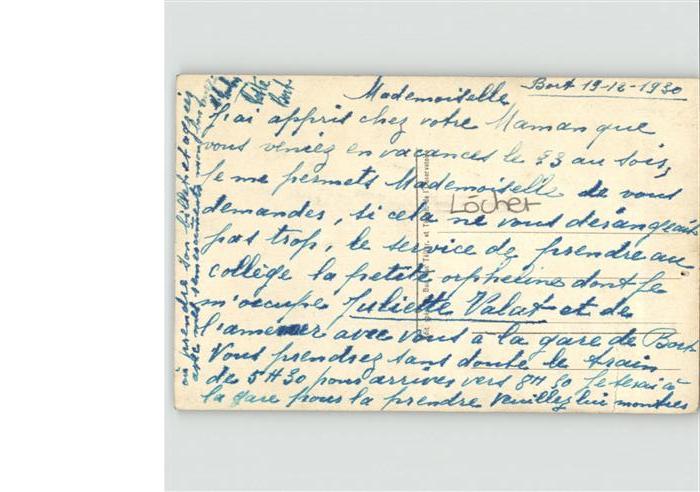 Bort 19-12-1930
Mademoiselle
J'ai appris chez votre Maman que
vous veniez en vacances le 23 au soir,
Je me permets Mademoiselle de vous
demander, si cela ne vous dérangeait
pas trop, le service de prendre au
collège la petite orpheline dont je
m'occupe Juliette Valat et de
l'amener avec vous à la gare de Bort
Vous prendrez sans doute le train
de 5H30 pour arriver vers 8H30 Je serai à
la gare pour la prendre Veuillez lui montrer
où prendre son billet et agréez
Lócher